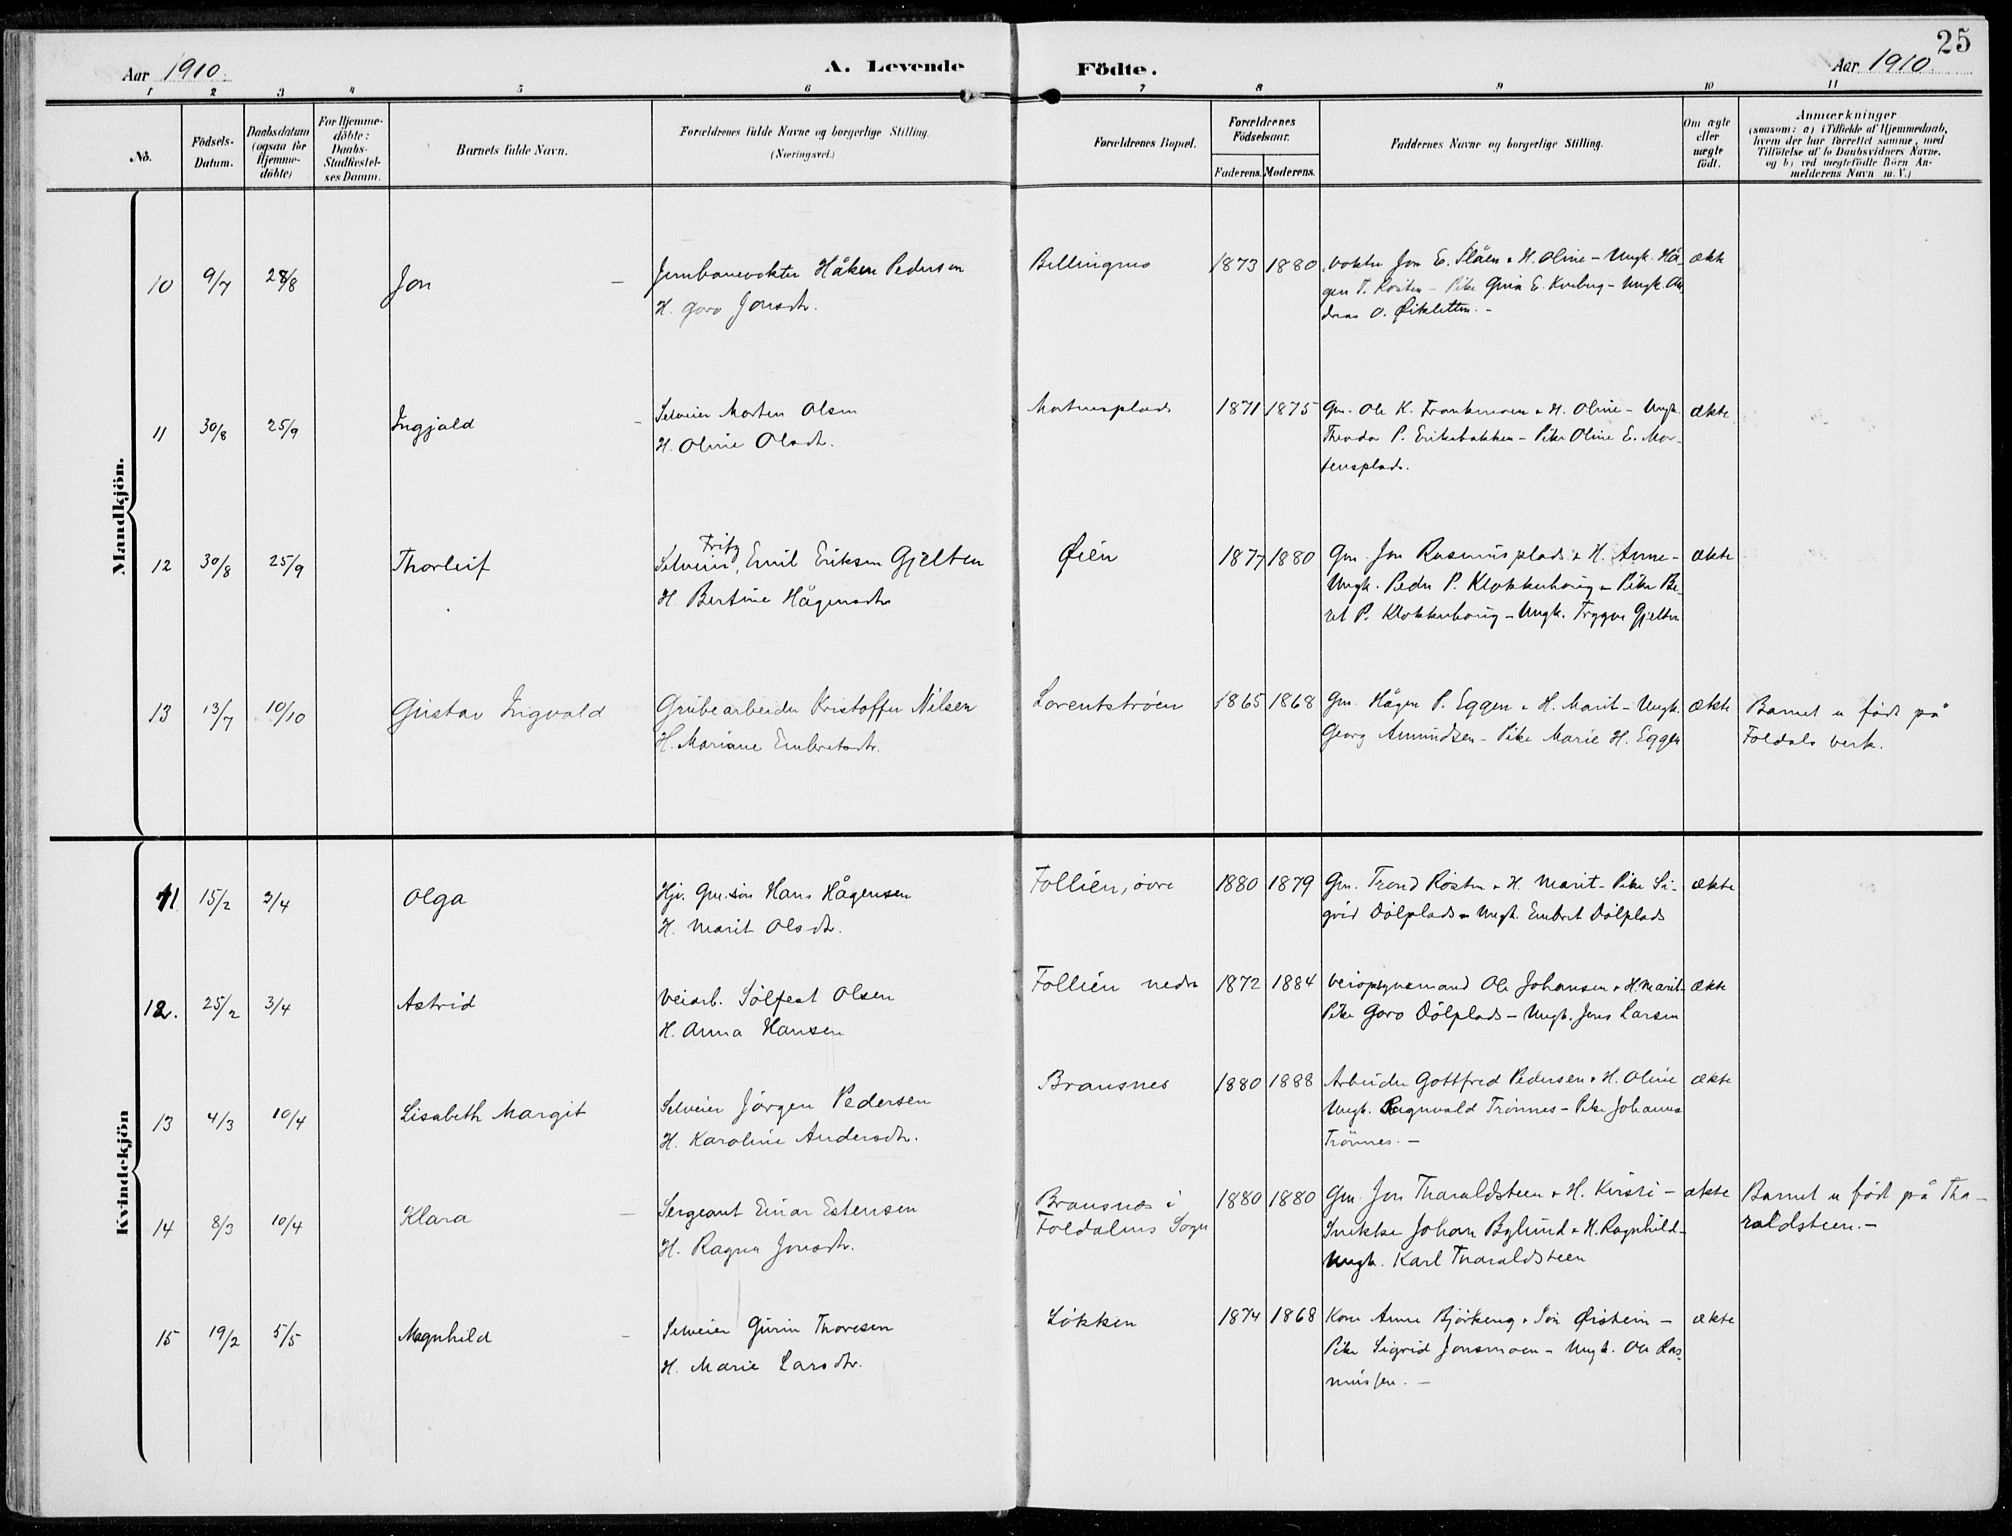 25
Aar 1910.
A. Levende
Födte.
Aar 1910.
1 2 3 4 5 6 7 8 9 10 11
No.
Födsels-
Datum.
Daabsdatum
(ogsaa for
Hjemme-
döbte)
For Hjemme-
döbte:
Daabs-
Stadfæstel-
ses Datum.
Barnets fulde Navn.
Forældrenes fulde Navne og borgerlige Stilling.
(Næringsvei.)
Forældrenes Bopæl.
Forældrenes
Födselsaar.
Faderens. Moderens.
Faddernes Navne og borgerlige Stilling.
Om ægte
eller
uægte
födt.
Anmærkninger
(saasom: a) i Tilfælde af Hjemmedaab,
hvem der har forrettet samme, med
Tilföielse af to Daabsvidners Navne,
og b) ved uægtefödte Börn An-
melderens Navn m. V.)
Mandkjön.
10 9/7 28/8 Jon —
Jernbanevokter Håken Pedersen
H. Goro Jonsdtr.
Bellingmo 1873 1880
vokter Jon E. Slåen & H. Oline – Ungk. Hå-
gen T. Rosten – Pike Guri E. Kveberg – Ungk. An-
dreas O. Øiksletten. –
ækte
11 30/8 25/9 Ingjald –
Selveier Morten Olsen
H. Oline Olsdtr.
Mortensplads 1871 1875
Gm. Ole K. Frankmoen & H. Oline – Ungk.
Theodor P. Eriksbakken – Pike Oline E. Mor-
tensplads.
ækte
12 30/8 25/9 Thorleif
Fritz
Selveier, Emil Eriksen Gjelten
H. Bertine Hågensdtr
Øien 1877 1880
Gm. Jon Rasmusplads & H. Anne –
Ungk. Peder P. Klokkerhaug – Pike Be-
ret P. Klokkerhaug – Ungk. Trygve Gjelten
ækte
13 13/7 10/10 Gustav Ingvald
Grubearbeider Kristoffer Nilsen
H. Mariane Embretsdtr.
Lorentstrøen 1865 1868
Gm. Hågen P. Eggen & H. Marit – Ungk.
Georg Amundsen – Pike Marie H. Eggen
ækte
Barnet er født på
Foldals verk.
Kvindekjön
11. 15/2 3/4 Olga
Hjv. Gm.søn Hans Hågensen
H. Marit Olsdtr.
Follien, övre 1880 1879
Gm. Trond Rosten & H. Marit – Pike Si-
grid Dölplads – Ungk. Embret Dölplads
ækte
12. 25/2 3/4 Astrid
Veiarb. Sölfest Olsen
H. Anna Hansen
Follien nedre 1872 1884
Veiopsynsmand Ole Johansen & H. Marit –
Pike Goro Dölplads – Ungk. Jens Larsen
ækte
13 4/3 10/4 Lisabeth Margit
Selveier Jörgen Pedersen
H. Karoline Andersdtr.
Bransnes 1880 1888
Arbeider Gottfred Pedersen & H. Oline
Ungk. Ragnvald Trönnes – Pike Johanna
Trönnes. –
ækte
14 8/3 10/4 Klara –
Sergeant Einar Estensen
H. Ragna Jonsdtr.
Bransnes i
Foldalens Sogn 1880 1880
Gm. Jon Tharaldsteen & H. Kirsti –
Snekker Johan Bylund & H. Ragnhild –
Ungk. Karl Tharaldsteen
ækte
Barnet er født på Tha-
raldsteen. –
15 19/2 5/5 Magnhild –
Selveier Gunn Thoresen
H. Marie Larsdtr.
Løkken 1874 1868
Kone Anne Bjørkeng & Søn Øistein –
Pike Sigrid Jonsmoen – Ungk. Ole Ras-
mussen. –
ækte